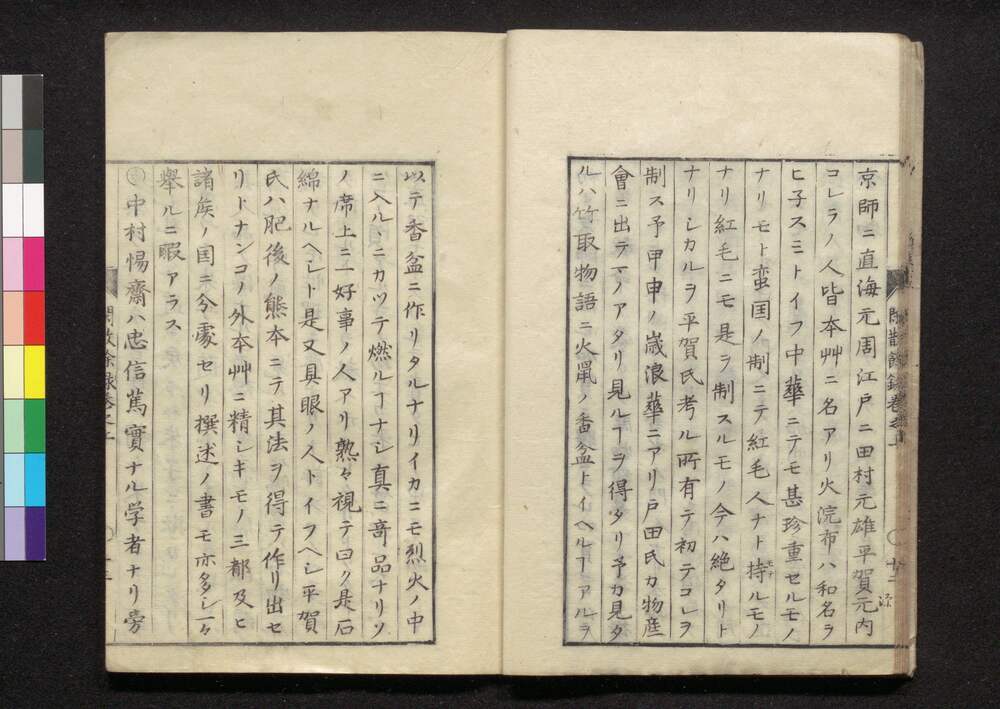 京師ニ直海元周江戸ニ田村元雄平賀元内
コレラノ人皆本艸ニ名アリ火浣布ハ和名ヲ
ヒ子スミトイフ中華ニテモ甚珍重セルモノ
ナリモト蛮国ノ制ニテ紅毛人ナト持ルモノ
ナリ紅毛ニモ是ヲ制スルモノ今ハ絶タリト
ナリシカルヲ平賀氏考ル所有テ初テコレヲ
制ス予甲申ノ歳浪華ニアリ戸田氏カ物産
會ニ出ラマノアタリ見ルヿヲ得タリ予カ見タ
ルハ竹取物語ニ火鼠ノ香盆トイヘルヿアルヲ
以テ香盆ニ作リタルナリイカニモ烈火ノ中
ニ入ルヽニカツテ燃ルヿナシ真ニ奇品ナリソ
ノ席上ニ一好事ノ人アリ熟々視テ曰ク是石
綿ナルヘシト是又具眼ノ人トイフヘシ平賀
氏ハ肥後ノ熊本ニテ其法ヲ得テ作リ出セ
リトナンコノ外本艸ニ精シキモノ三都及ヒ
諸矦ノ国ニ兮處セリ撰述ノ書モ亦多シ一々
擧ルニ暇アラス
中村惕齋ハ忠信篤實ナル学者ナリ旁
閑散餘録巻之下